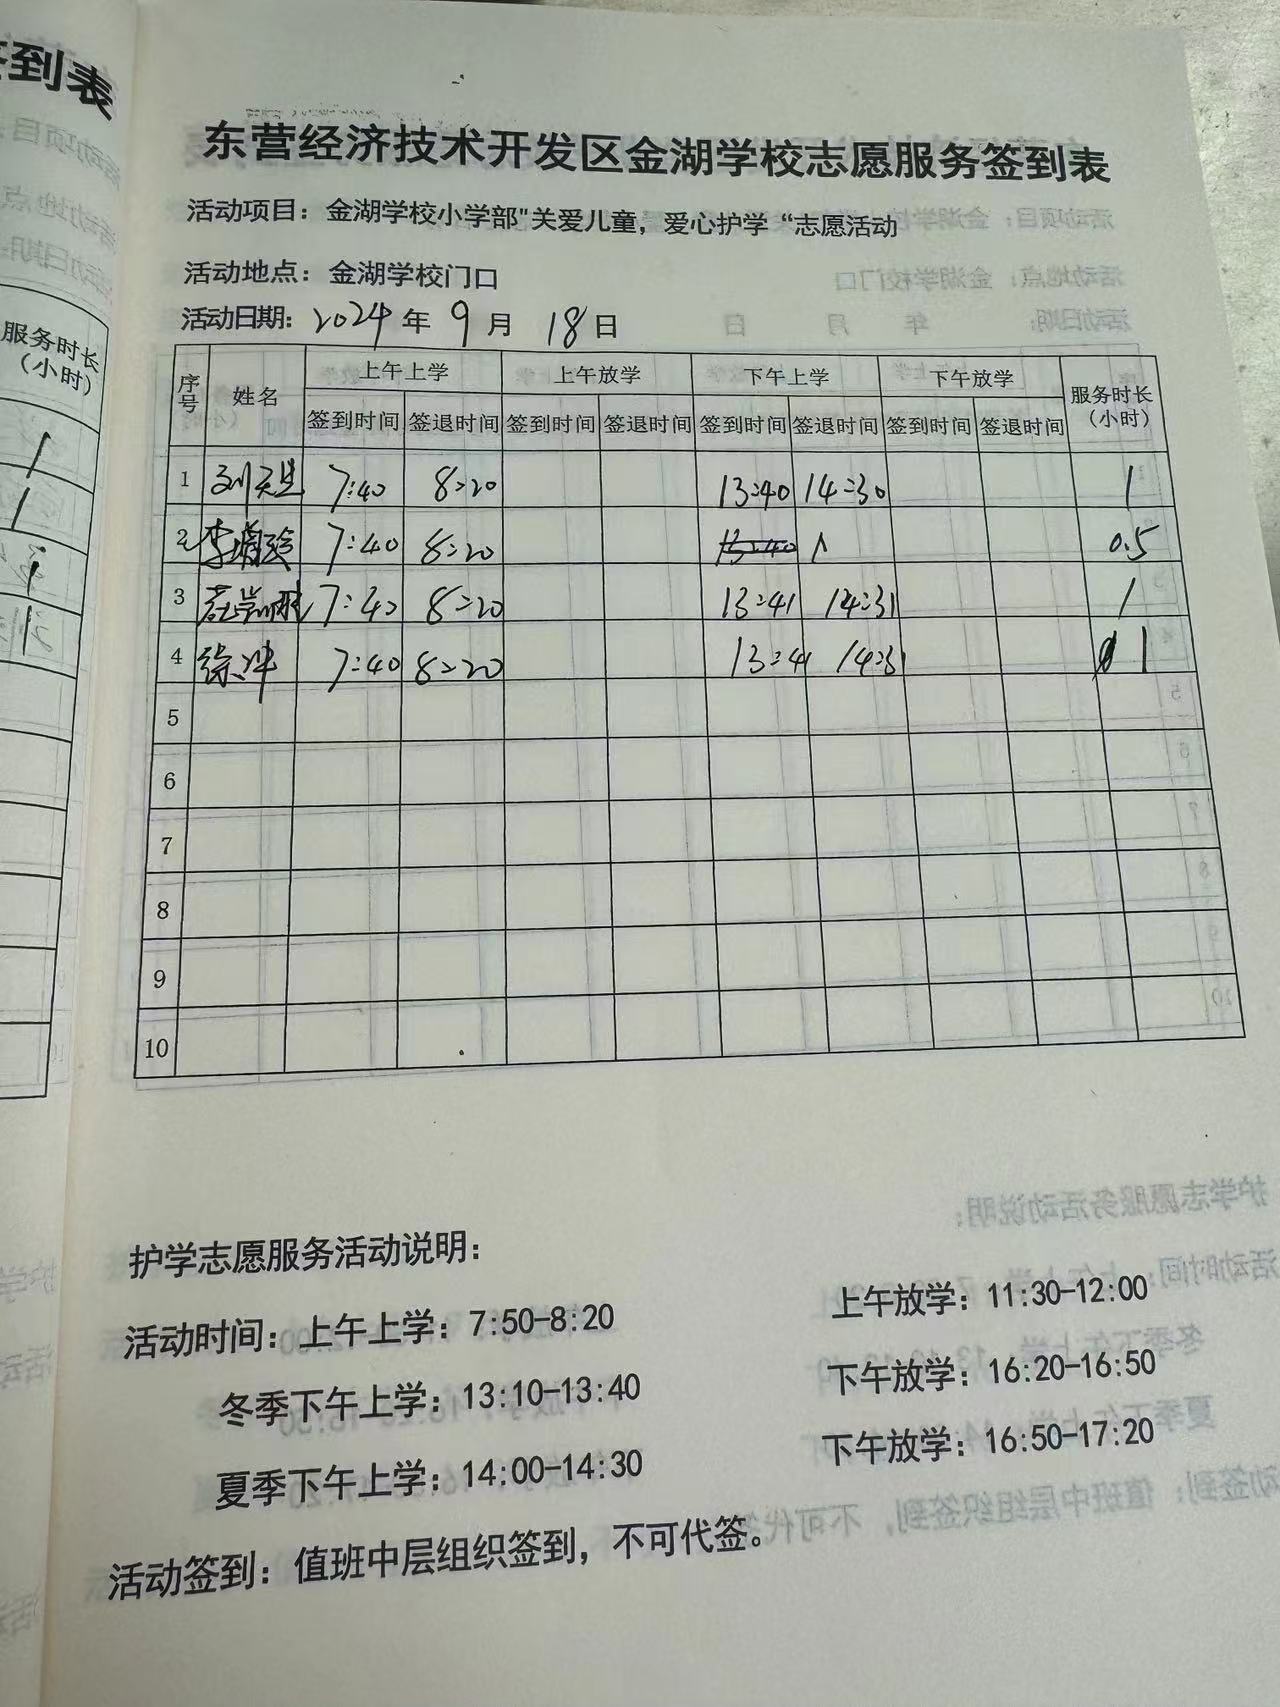 签到表
服务时长
（小时）
1
1
1
东营经济技术开发区金湖学校志愿服务签到表
活动项目：金湖学校小学部"关爱儿童，爱心护学“志愿活动
活动地点：金湖学校门口
活动日期：2024年9月18日
序号 姓名 上午上学 上午放学 下午上学 下午放学 服务时长（小时）
签到时间 签退时间 签到时间 签退时间 签到时间 签退时间 签到时间 签退时间
1 7:40 8:20 13:40 14:30 1
2 7:40 8:20 13:40 0.5
3 7:40 8:20 13:41 14:31 1
4 徐冲 7:40 8:20 13:41 14:31 1
5
6
7
8
9
10
护学志愿服务活动说明：
活动时间：上午上学：7:50-8:20 上午放学：11:30-12:00
冬季下午上学：13:10-13:40 下午放学：16:20-16:50
夏季下午上学：14:00-14:30 下午放学：16:50-17:20
活动签到：值班中层组织签到，不可代签。